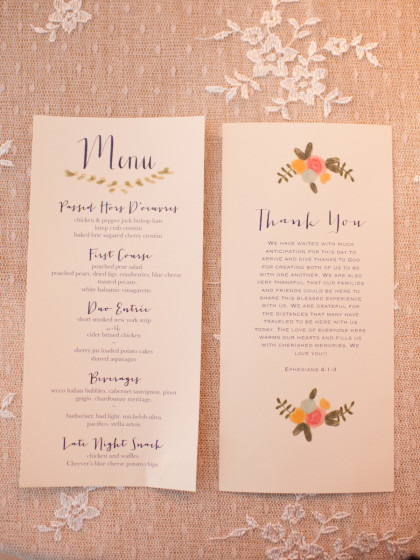 Menu
Passed Hors D'oeuvres
chicken & pepper jack bishop bars
lump crab crostini
baked brie sugared cherry crostini
First Course
poached pear salad
poached pears, dried figs, cranberries, blue cheese
toasted pecans,
white balsamic vinaigrette
Duo Entrée
short smoked new york strip
with
cider brined chicken
~
sherry jus loaded potato cakes
shaved asparagus
Beverages
secco italian bubbles, cabernet sauvignon, pinot
grigio, chardonnay, meritage.
~
budweiser, bud light, michelob ultra,
pacifico, stella artois.
Late Night Snack
chicken and waffles
Cheever's blue cheese potato chips
Thank You
We have waited with much
anticipation for this day to
arrive and give thanks to God
for creating both of us to be
with one another. We are also
very thankful that our families
and friends could be here to
share this blessed experience
with us. We are grateful for
the distances that many have
traveled to be here with us
today. The love of everyone here
warms our hearts and fills us
with cherished memories. We
love you!!
Ephesians 4:1-3